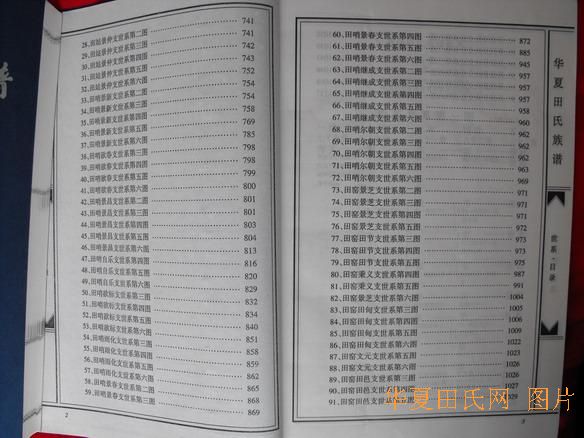 28、田哨景仲支世系第二图 741
29、田哨景仲支世系第三图 741
30、田哨景仲支世系第四图 742
31、田哨景仲支世系第五图 743
32、田哨景仲支世系第六图 752
33、田哨景新支世系第二图 754
34、田哨景新支世系第三图 754
35、田哨景新支世系第四图 758
36、田哨景新支世系第五图 769
37、田哨景新支世系第六图 785
38、田哨欲春支世系第三图 798
39、田哨欲春支世系第四图 799
40、田哨欲春支世系第五图 799
41、田哨欲春支世系第六图 800
42、田哨景昌支世系第二图 801
43、田哨景昌支世系第三图 801
44、田哨景昌支世系第四图 803
45、田哨景昌支世系第五图 804
46、田哨景昌支世系第六图 813
47、田哨自乐支世系第四图 816
48、田哨自乐支世系第五图 820
49、田哨自乐支世系第六图 829
50、田哨欲标支世系第三图 832
51、田哨欲标支世系第四图 834
52、田哨欲标支世系第五图 840
53、田哨欲标支世系第六图 851
54、田哨雨化支世系第三图 858
55、田哨雨化支世系第四图 859
56、田哨雨化支世系第五图 863
57、田哨雨化支世系第六图 865
58、田哨景春支世系第二图 868
59、田哨景春支世系第三图 869
2
60、田哨景春支世系第四图 872
61、田哨景春支世系第五图 885
62、田哨景春支世系第六图 945
63、田哨继成支世系第二图 945
64、田哨继成支世系第三图 957
65、田哨继成支世系第四图 957
66、田哨继成支世系第五图 957
67、田哨继成支世系第六图 960
68、田哨尔朝支世系第二图 962
69、田哨尔朝支世系第三图 962
70、田哨尔朝支世系第四图 963
71、田哨尔朝支世系第五图 969
72、田哨尔朝支世系第六图 971
73、田窑景芝支世系第二图 971
74、田窑景芝支世系第三图 971
75、田窑景芝支世系第四图 972
76、田窑景芝支世系第五图 973
77、田窑田节支世系第三图 973
78、田窑田节支世系第四图 973
79、田窑田节支世系第五图 975
80、田窑秉义支世系第四图 987
81、田窑秉义支世系第五图 991
82、田窑景芝支世系第六图 1004
83、田窑田甸支世系第三图 1006
84、田窑田甸支世系第四图 1006
85、田窑田甸支世系第五图 1009
86、田窑田甸支世系第六图 1022
87、田窑文元支世系第五图 1026
88、田窑文元支世系第六图 1026
89、田窑田邑支世系第三图
90、田窑田邑支世系第四图
91、田窑田邑支世系第五图
3
华夏田氏族谱
世系·目录
谱
华夏田氏网 图片